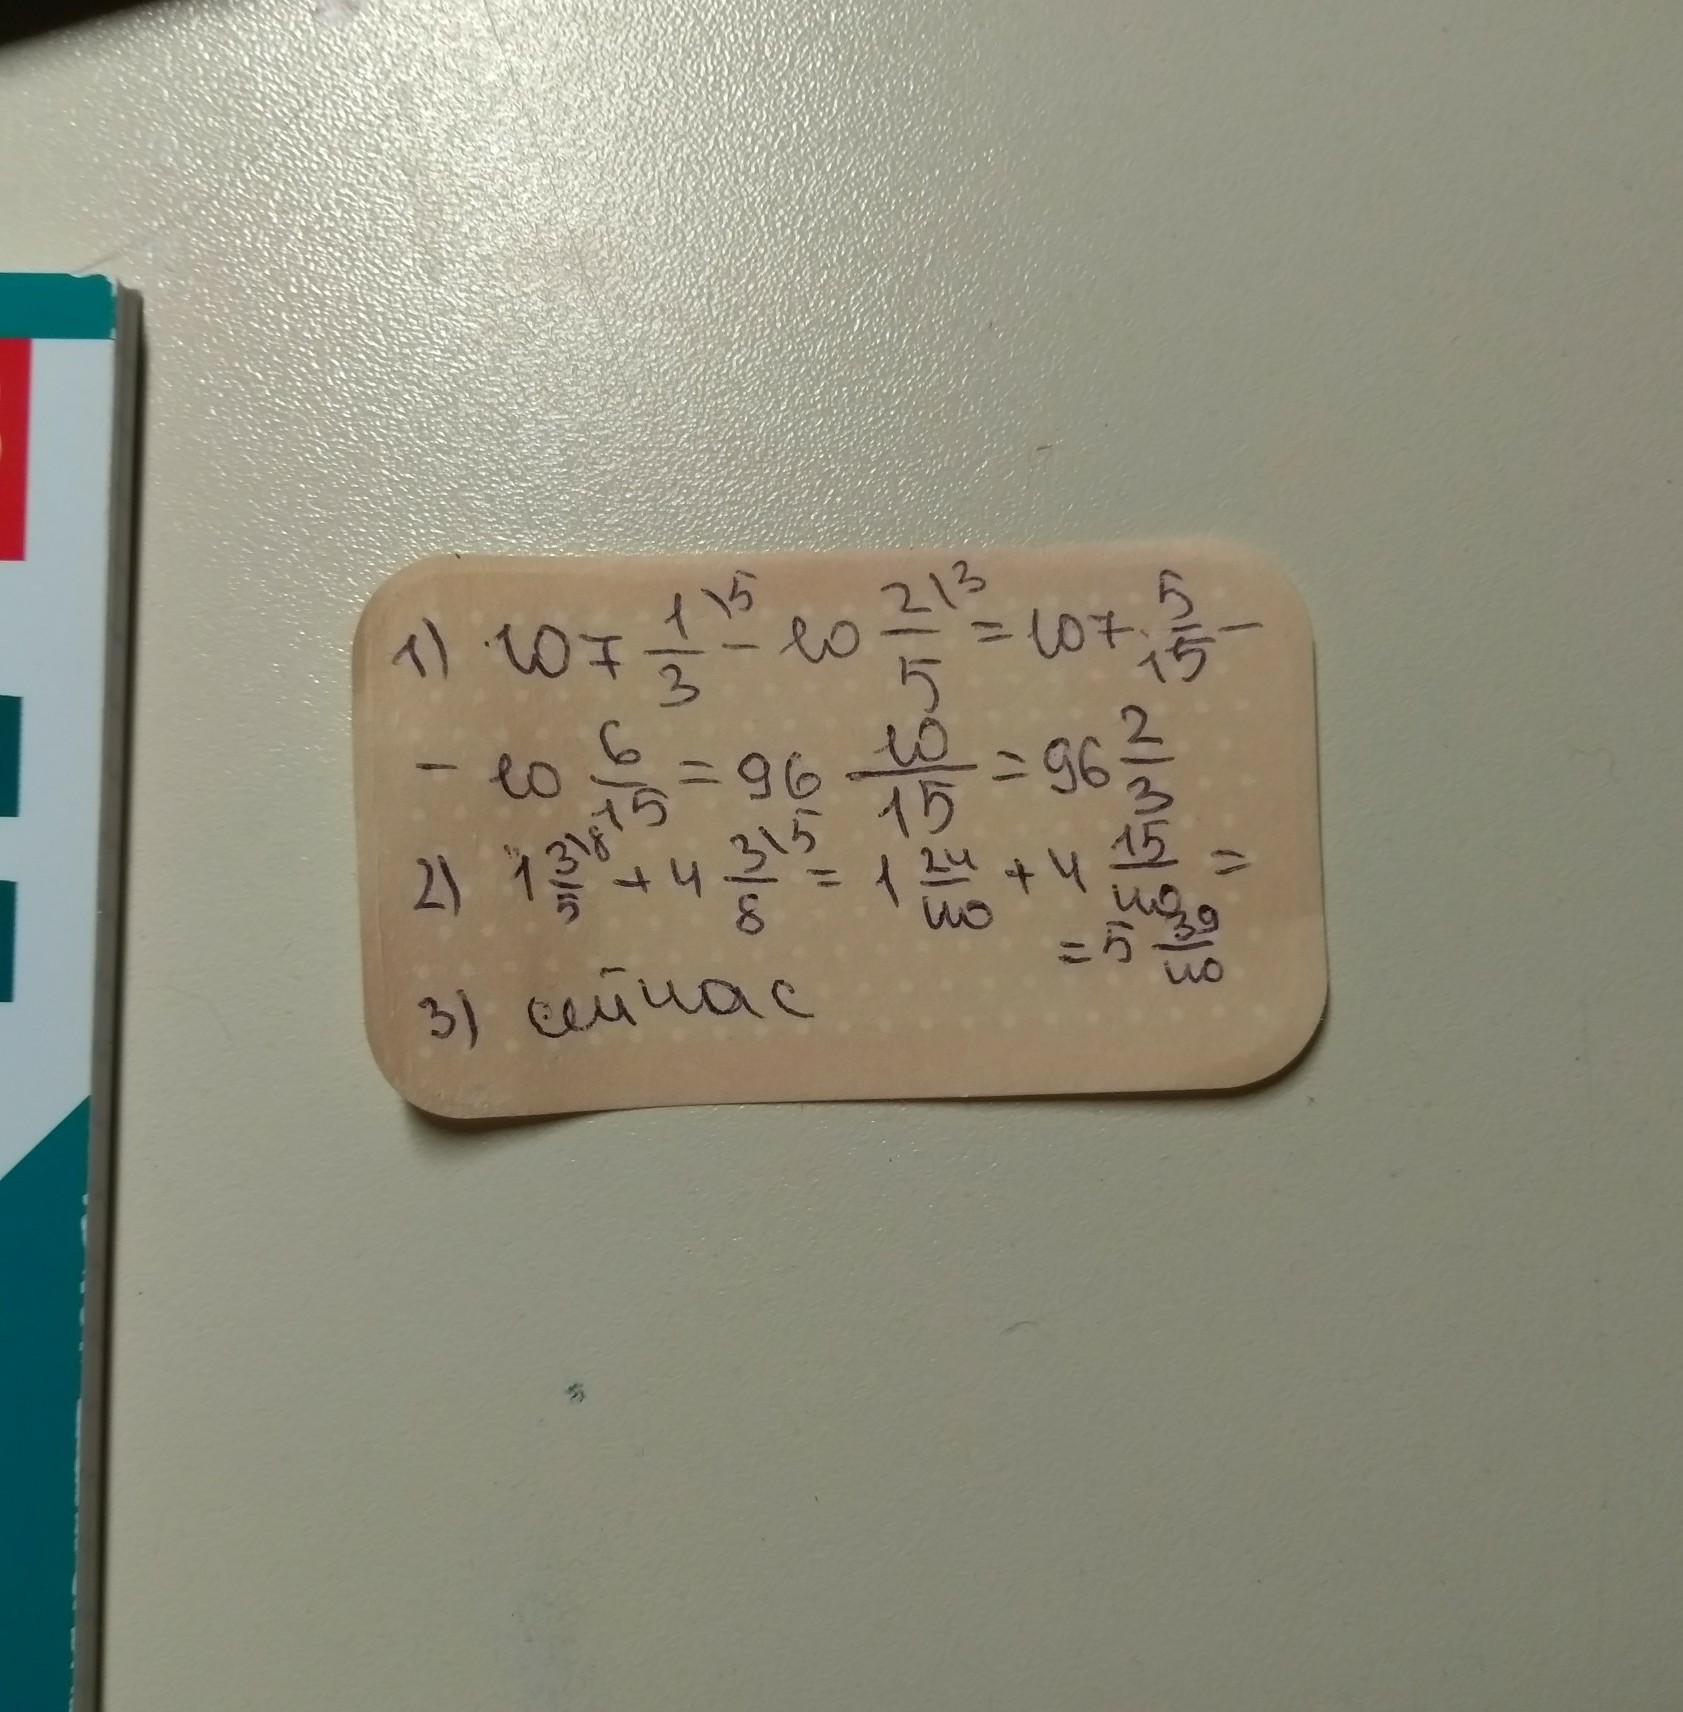 1) 107 1/3 \5 - 10 2/5 \3 = 107 5/15 -
- 10 6/15 = 96 10/15 = 96 2/3
2) 1 3/5 \8 + 4 3/8 \5 = 1 24/40 + 4 15/40 =
= 5 39/40
3) сейчас